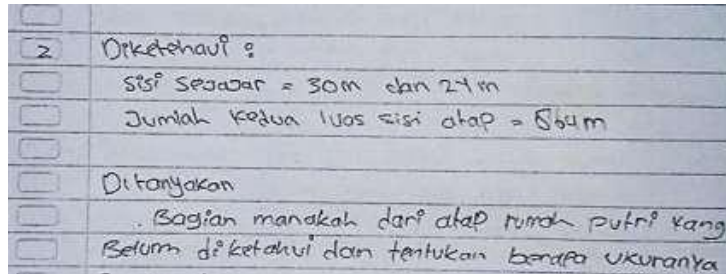 2 Diketahui :
Sisi Sejajar = 30m dan 24m
Jumlah Kedua luas sisi atap = 864m
Ditanyakan
. Bagian manakah dari atap rumah putri Yang
Belum diketahui dan tentukan berapa ukuranya